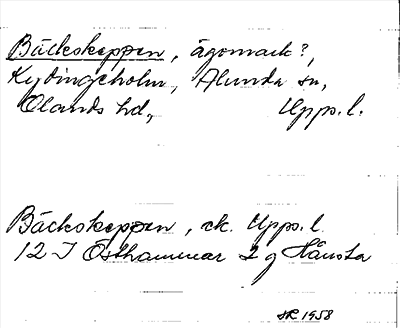 Bäckskeppen, ägomark?,
Kydingeholm, Alunda sn,
Olands hd, Upps. l.
Bäckskeppen, ek. Upps. l.
12 I Östhammar 2 g Hånsta
SR 1958